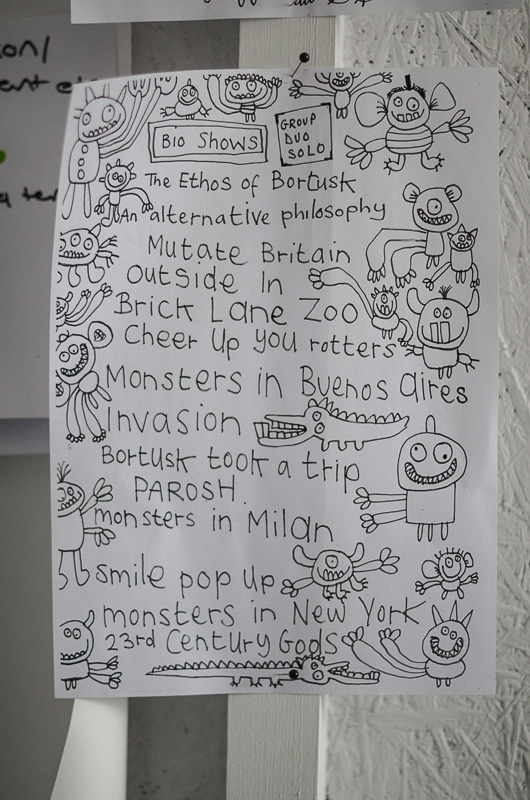 on/
Bio Shows
GROUP
DUO
SOLO
The Ethos of Bortusk
An alternative philosophy
Mutate Britain
outside In
Brick Lane Zoo
Cheer Up you rotters
Monsters in Buenos Aires
Invasion
Bortusk took a trip
PAROSH.
monsters in Milan
smile pop up
monsters in New York
23rd Century Gods